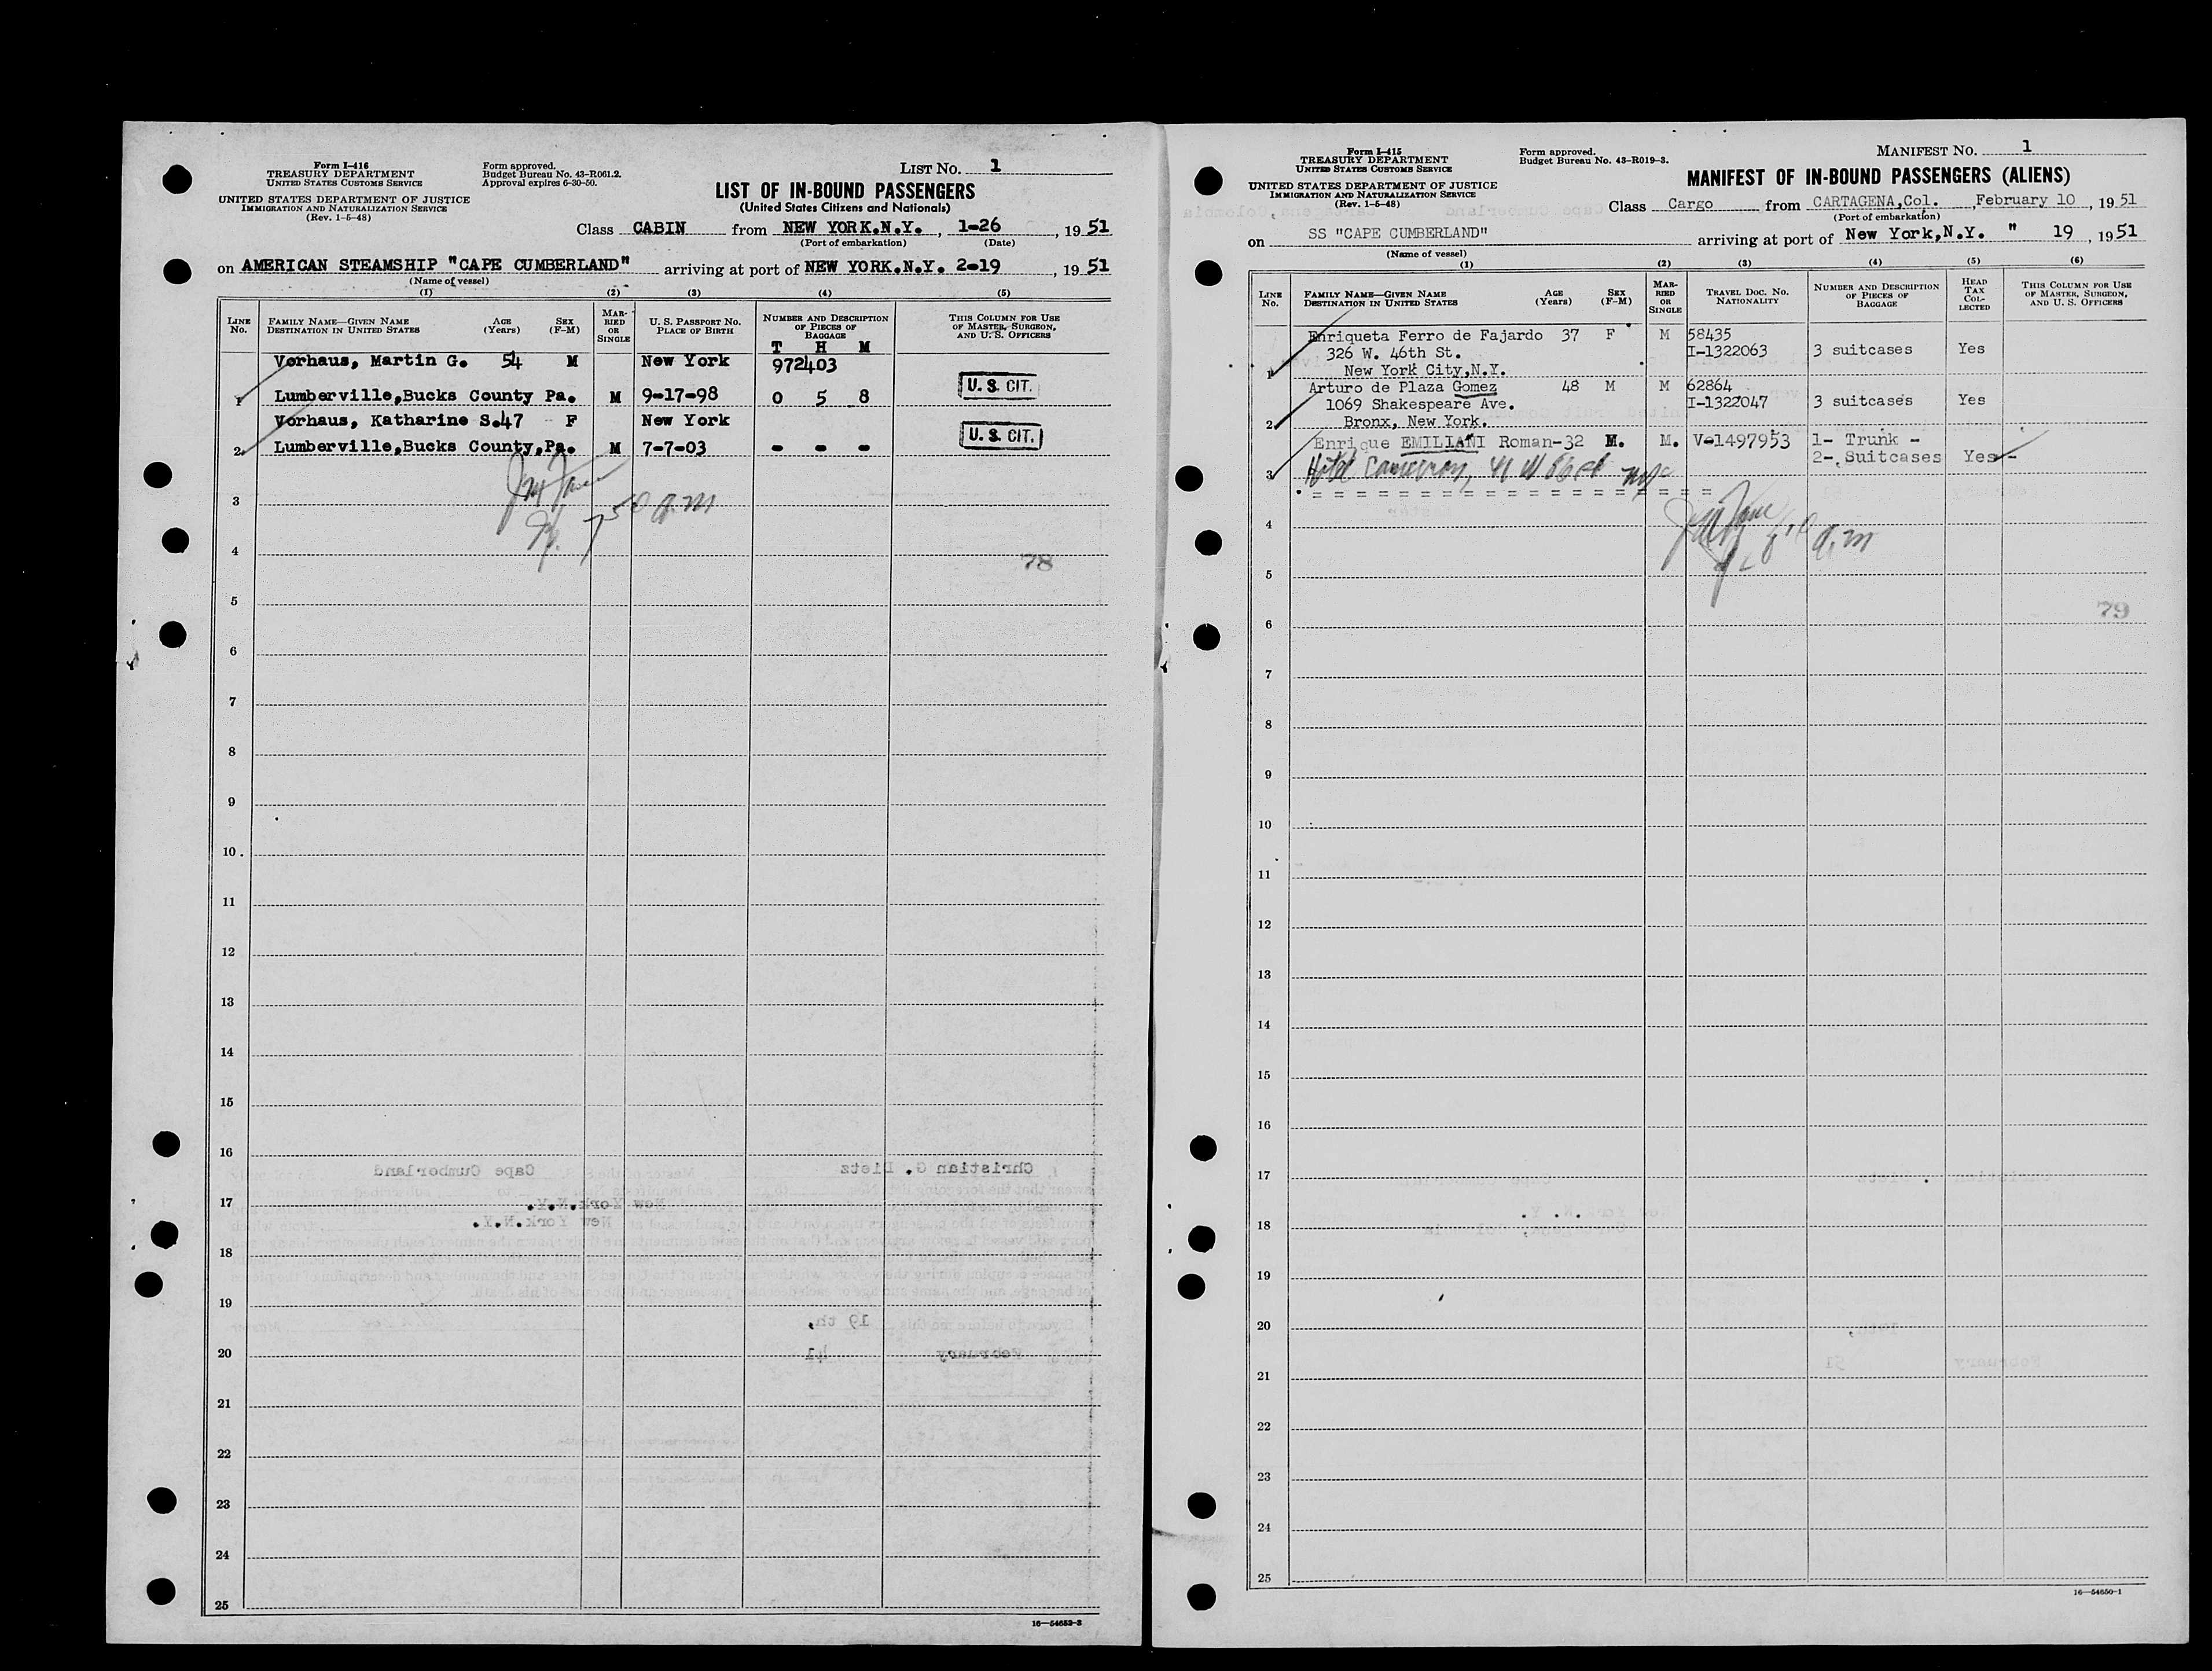 Form I-416
TREASURY DEPARTMENT
UNITED STATES CUSTOMS SERVICE
UNITED STATES DEPARTMENT OF JUSTICE
IMMIGRATION AND NATURALIZATION SERVICE
(Rev. 1-5-48)
Form approved.
Budget Bureau No. 43-R061.2.
Approval expires 6-30-50.
LIST NO. 1
LIST OF IN-BOUND PASSENGERS
(United States Citizens and Nationals)
Class CABIN from NEW YORK.N.Y., 1-26, 1951
(Port of embarkation) (Date)
on AMERICAN STEAMSHIP "CAPE CUMBERLAND" arriving at port of NEW YORK.N.Y. 2-19, 1951
(Name of vessel)
(1) (2) (3) (4) (5)
LINE No. FAMILY NAME—GIVEN NAME DESTINATION IN UNITED STATES AGE (Years) SEX (F-M) MARRIED OR SINGLE U. S. PASSPORT NO. PLACE OF BIRTH NUMBER AND DESCRIPTION OF PIECES OF BAGGAGE THIS COLUMN FOR USE OF MASTER, SURGEON, AND U. S. OFFICERS
T H M
Vorhaus, Martin G. 54 M New York 972403
1 Lumberville,Bucks County Pa. M 9-17-98 0 5 8 U. S. CIT.
Vorhaus, Katharine S.47 F New York
2 Lumberville,Bucks County,Pa. M 7-7-03 - - - U. S. CIT.
7 50 a.m
3
4
78
5
6
7
8
9
10
11
12
13
14
15
16
Christian G. Dietz Cape Cumberland
17
New York.N.Y.
New York.N.Y.
18
19
19 th,
20
February
21
22
23
24
25
16—54652-3
Form I-415
TREASURY DEPARTMENT
UNITED STATES CUSTOMS SERVICE
UNITED STATES DEPARTMENT OF JUSTICE
IMMIGRATION AND NATURALIZATION SERVICE
(Rev. 1-5-48)
Form approved.
Budget Bureau No. 43-R019-3.
MANIFEST NO. 1
MANIFEST OF IN-BOUND PASSENGERS (ALIENS)
Class Cargo from CARTAGENA,Col. ,February 10, 1951
(Port of embarkation)
on SS "CAPE CUMBERLAND" arriving at port of New York,N.Y. " 19, 1951
(Name of vessel)
(1) (2) (3) (4) (5) (6)
LINE No. FAMILY NAME—GIVEN NAME DESTINATION IN UNITED STATES AGE (Years) SEX (F-M) MARRIED OR SINGLE TRAVEL DOC. NO. NATIONALITY NUMBER AND DESCRIPTION OF PIECES OF BAGGAGE HEAD TAX COLLECTED THIS COLUMN FOR USE OF MASTER, SURGEON, AND U. S. OFFICERS
Enriqueta Ferro de Fajardo 37 F M 58435
326 W. 46th St. I-1322063 3 suitcases Yes
1 New York City,N.Y.
Arturo de Plaza Gomez 48 M M 62864
1069 Shakespeare Ave. I-1322047 3 suitcases Yes
2 Bronx, New York.
Enrique EMILIANI Roman-32 M. M. V-1497953 1- Trunk -
2- Suitcases Yes -
3 Hotel Cameron, 41 W
= = = = = = = = = = = = = = = = = = = =
4
a.m
5
79
6
7
8
9
10
11
12
13
14
15
16
17
New York.N. Y.
18
19
20
21
February 51
22
23
24
25
16—54650-1